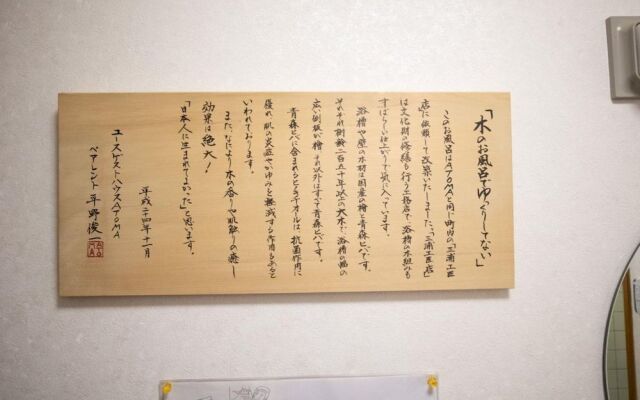 「木のお風呂でゆっくりしてない」
このお風呂はATOMAと同じ町内の「三浦工匠
店」に依頼して改築いたしました。「三浦工匠店」
は文化財の修繕も行う工務店で、浴槽の木組みも
すばらしい仕上がりで気に入っています。
浴槽や壁の木材は国産の檜と青森ヒバです。
それぞれ樹齢二百五十年以上の大木で、浴槽の幅の
広い側板が檜、それ以外はすべて青森ヒバです。
青森ヒバに含まれるヒノキチオールは、抗菌作用に
優れ、肌の炎症やかゆみを軽減する作用もあると
いわれております。
また、なにより木の香りや肌触りの癒し
効果は絶大！
「日本人に生まれてよかった」と思います。
平成二十四年十一月
ユースゲストハウスATOMA
ペアレント 平野俊一